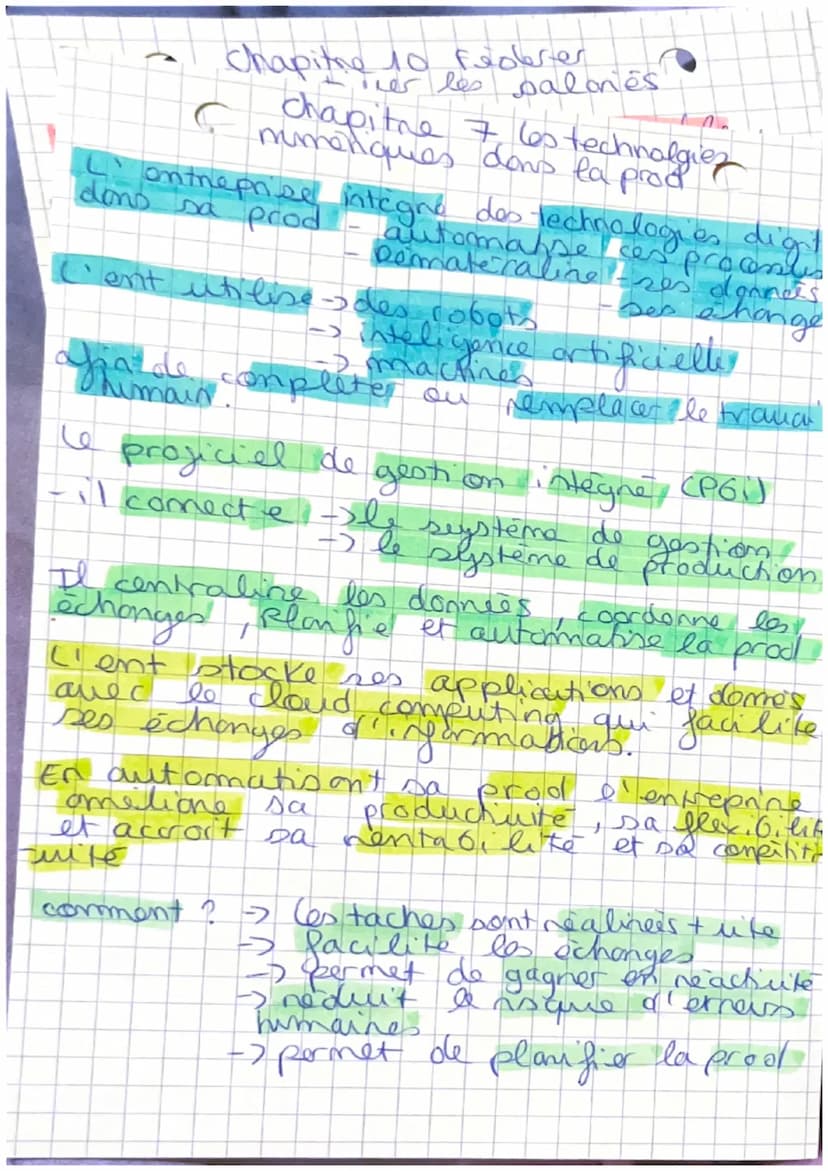 Chapitre 10 Fédérer
les salariés
Chapitre 7 les technolgies
numériques dans la prod
L'entreprise intègre des technologies digit
dans sa prod - automatise ces processus
- Dématéralise - ses données
- ses échange
L'ent utilise -> des robots
-> inteligence artificielle
-> machines
afin de compléter ou remplacer le travai
humain.
Le progiciel de gestion intégré (PGi)
- il connecte -> le système de gestion
-> le système de production
Il centralise les données, coordonne les
échanges, planifie et automatise la prod
L'ent stocke ses applications et donnés
avec le cloud computing qui facilite
ses échanges d'informations.
En automatisant sa prod l'entreprise
améliore sa productivité, sa flexibilit
et accroit sa rentabilité et sa compétiti
vité
comment ? -> Les taches sont réalisées + vite
-> facilite les échanges
-> permet de gagner en réactivité
-> réduit le risque d'erreurs
humaines
-> permet de planifier la prod